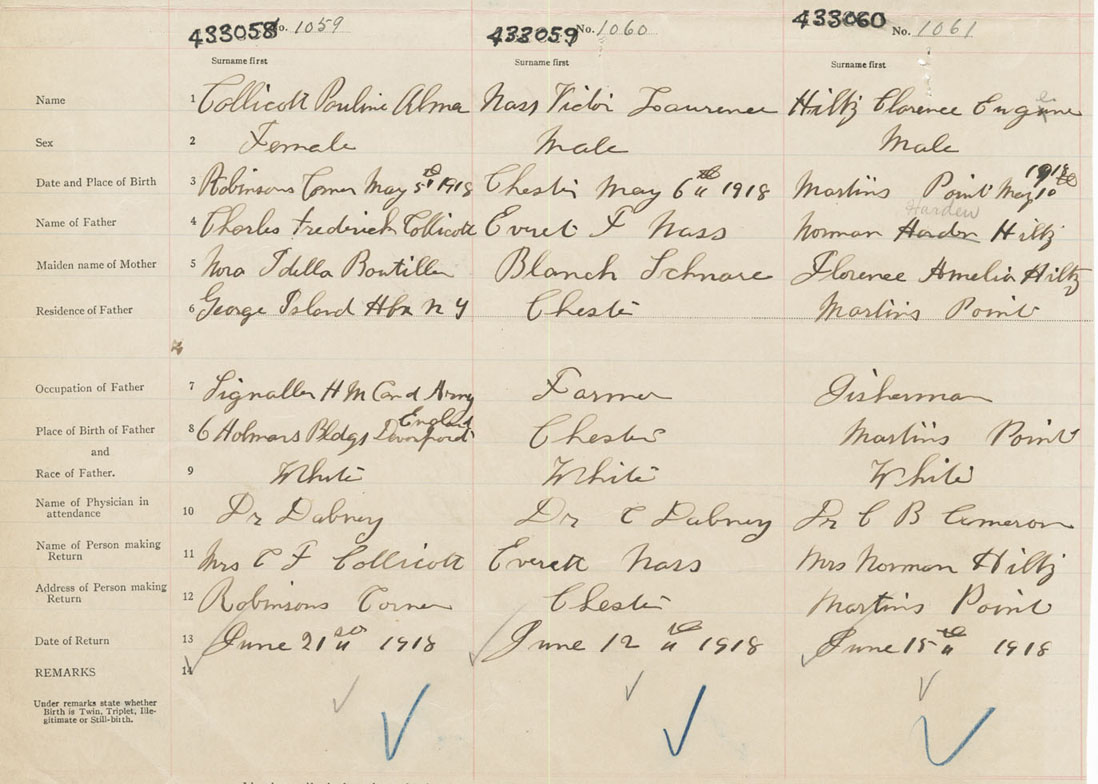 433058 No. 1059 433059 No. 1060 433060 No. 1061
Surname first Surname first Surname first
Name 1 Collicott Pauline Alma Nass Victor Laurence Hiltz Clarence Eugene
Sex 2 Female Male Male
Date and Place of Birth 3 Robinsons Corner May 5th 1918 Chester May 6th 1918 Martins Point May 10th 1918
Harden
Name of Father 4 Charles Frederick Collicott Everet F Nass Norman Harden Hiltz
Maiden name of Mother 5 Nora Idella Boutillier Blanch Schnare Florence Amelia Hiltz
Residence of Father 6 George Island Hbr N Y Chester Martins Point
Occupation of Father 7 Signaller H M Can d Army Farmer Fisherman
Place of Birth of Father 8 6 Holmars Bldgs England Chester Martins Point
and
Race of Father. 9 White White White
Name of Physician in attendance 10 Dr Dabney Dr C Dabney Dr C B Cameron
Name of Person making Return 11 Mrs C F Collicott Everett Nass Mrs Norman Hiltz
Address of Person making Return 12 Robinsons Corner Chester Martins Point
Date of Return 13 June 21st 1918 June 12th 1918 June 15th 1918
REMARKS 14
Under remarks state whether
Birth is Twin, Triplet, Ille-
gitimate or Still-birth.